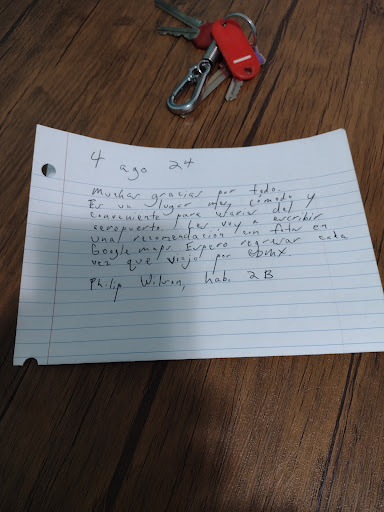 4 ago 24
Muchas gracias por todo.
Es un lugar muy comodo y
conveniente para usarios del
aeropuerto. Les voy a escribir
una recomendacion con fotos en
Google maps. Espero regresar cada
vez que viajo por CDMX.
Philip Wilson, hab. 2B